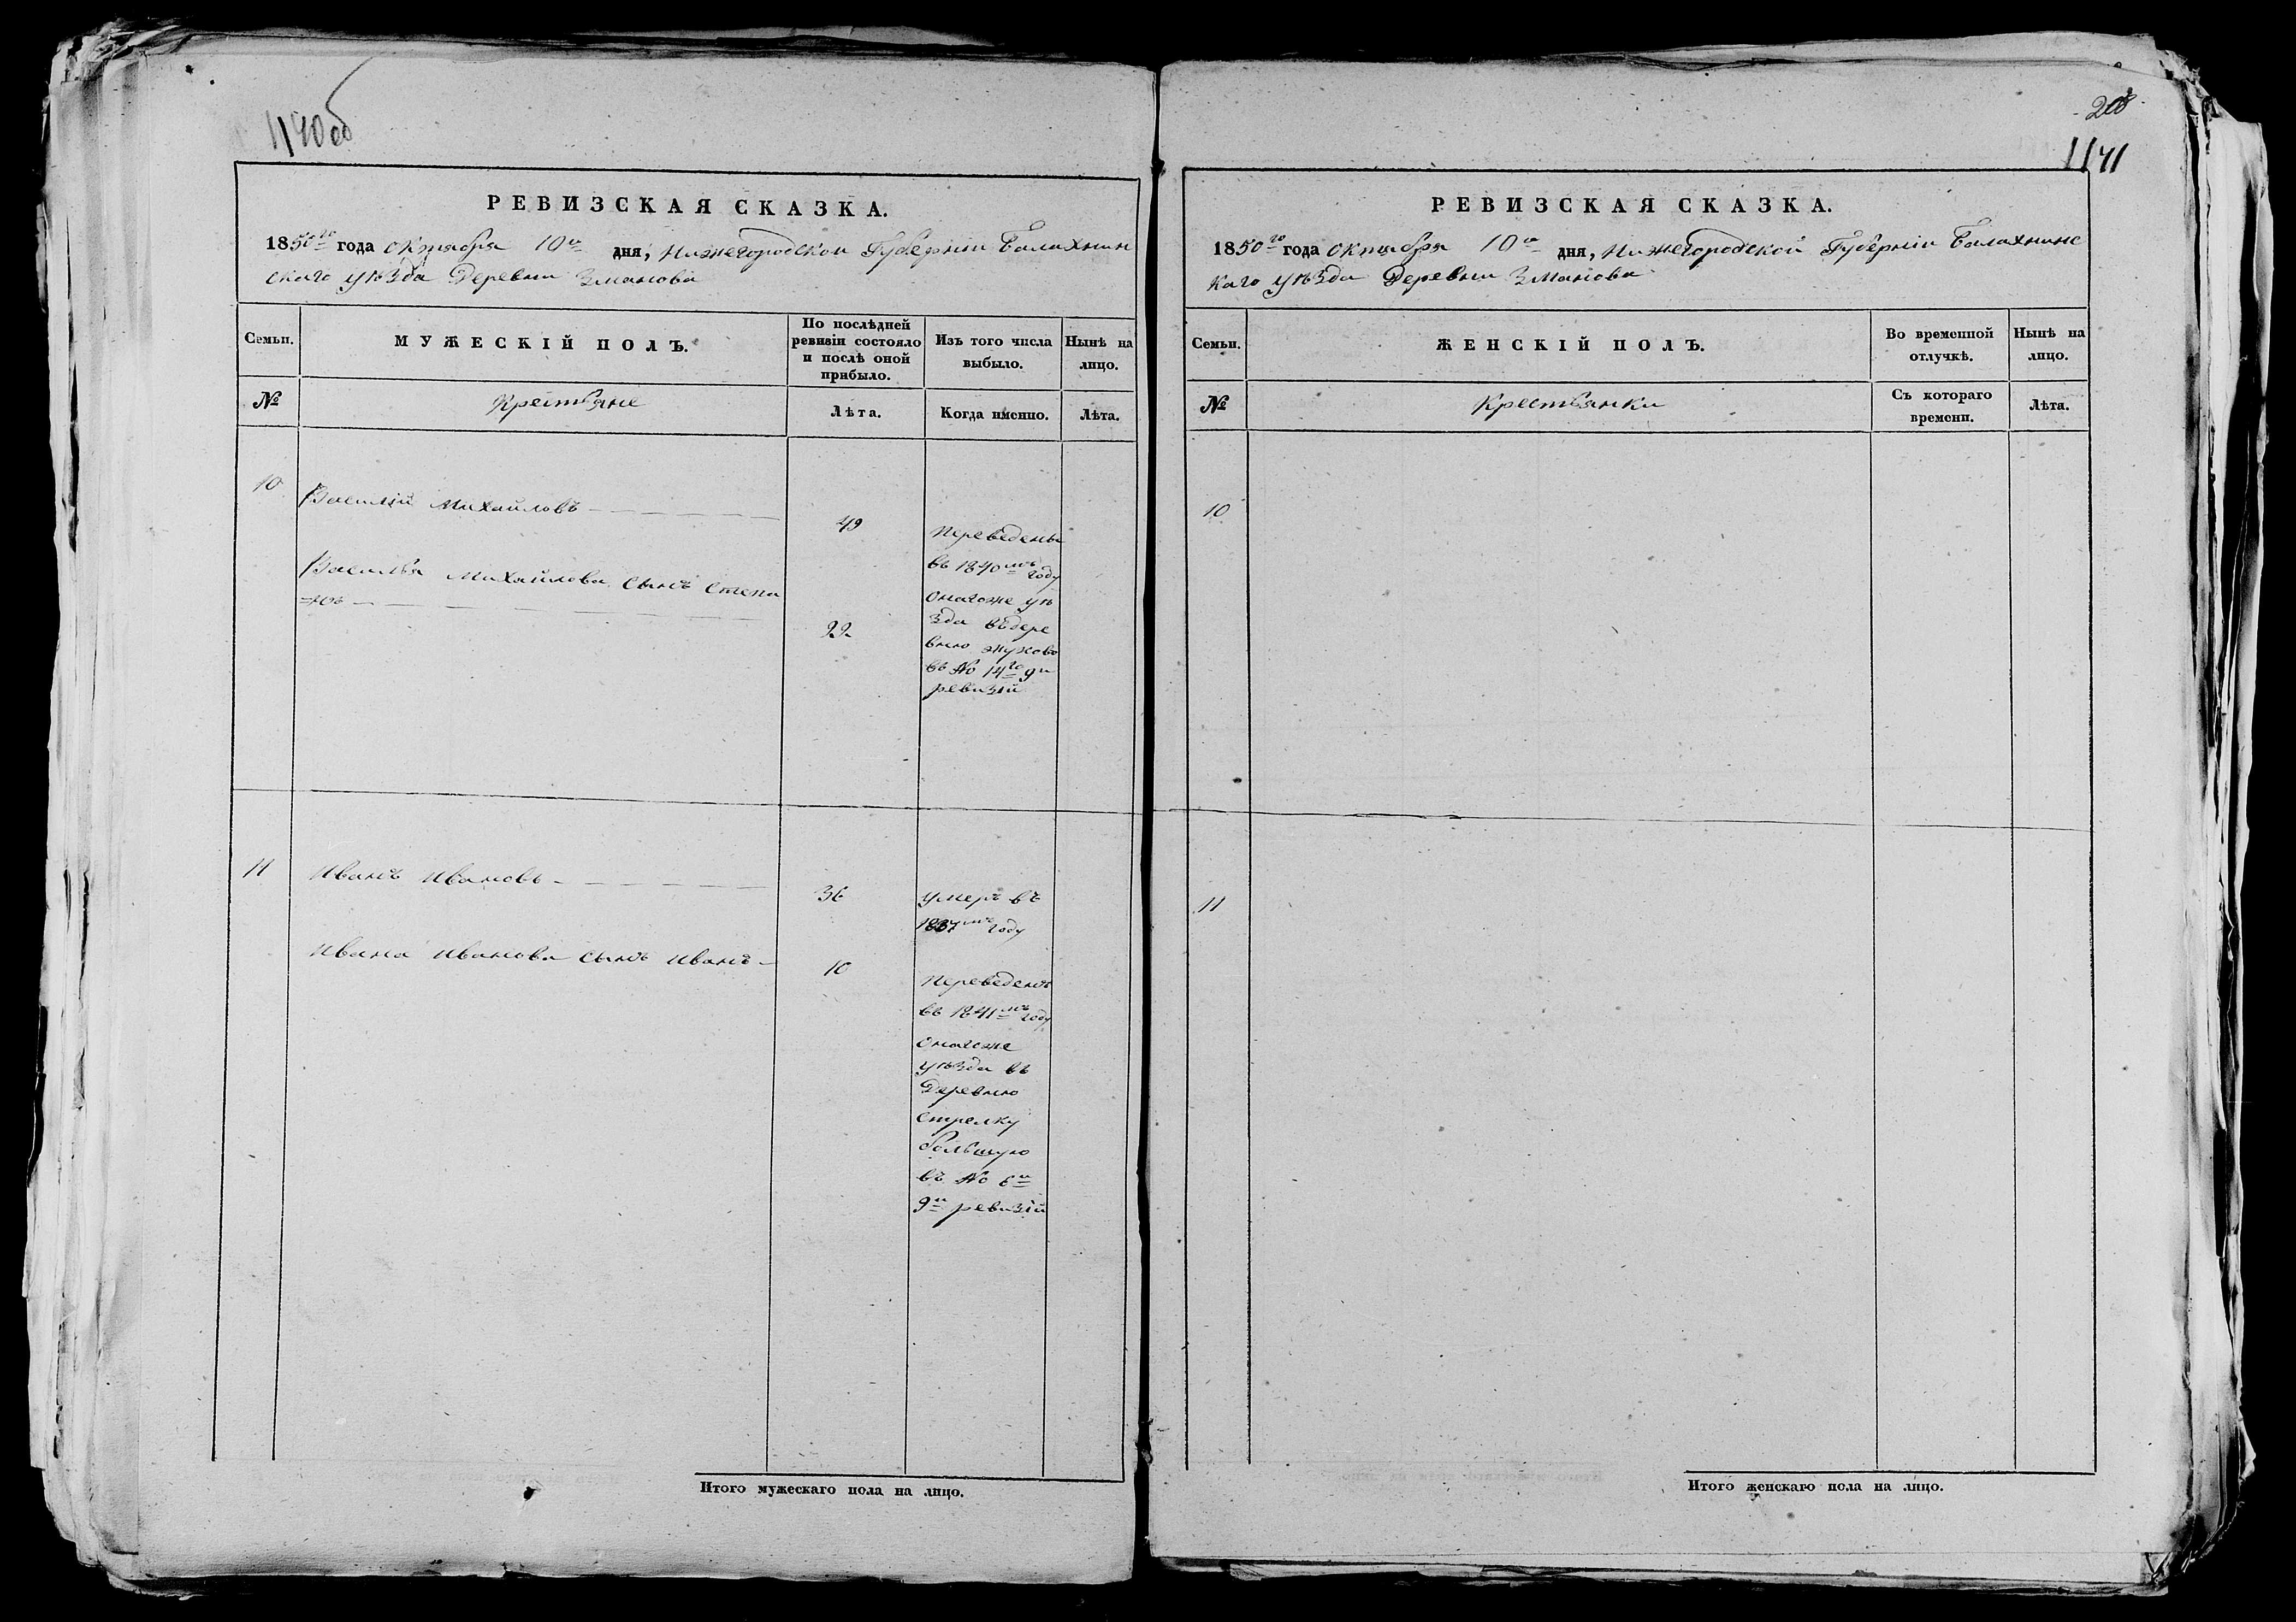 1140об
РЕВИЗСКАЯ СКАЗКА.
1850го года октября 10го дня, Нижегородской Губерніи Балахнин
скаго уѣзда Деревни Зманова
Семьи.
МУЖЕСКІЙ ПОЛЪ.
По послѣдней
ревизіи состояло
и послѣ оной
прибыло.
Изъ того числа
выбыло.
Нынѣ на
лицо.
№
Крестьяне
Лѣта.
Когда именно.
Лѣта.
10
Василій Михайловъ
49
Переведены
въ 1840мъ году
Василья Михайлова сынъ Степа
=нъ
22
оногоже уѣ
зда въдере
вню Жуково
въ № 14го 9й
ревизій
11
Иванъ Ивановъ
36
умеръ въ
1837мъ году
Ивана Иванова сынъ Иванъ
10
Переведенъ
въ 1841мъ году
оногоже
уѣзда въ
Деревню
стрелку
большую
въ № 6й
9й ревизій
Итого мужескаго пола на лицо.
1141
РЕВИЗСКАЯ СКАЗКА.
1850го года октября 10го дня, Нижегородской Губерніи Балахнинс
каго уѣзда Деревни Зманова
Семьи.
ЖЕНСКІЙ ПОЛЪ.
Во временной
отлучкѣ.
Нынѣ на
лицо.
№
Крестьянки
Съ котораго
времени.
Лѣта.
10
11
Итого женскаго пола на лицо.